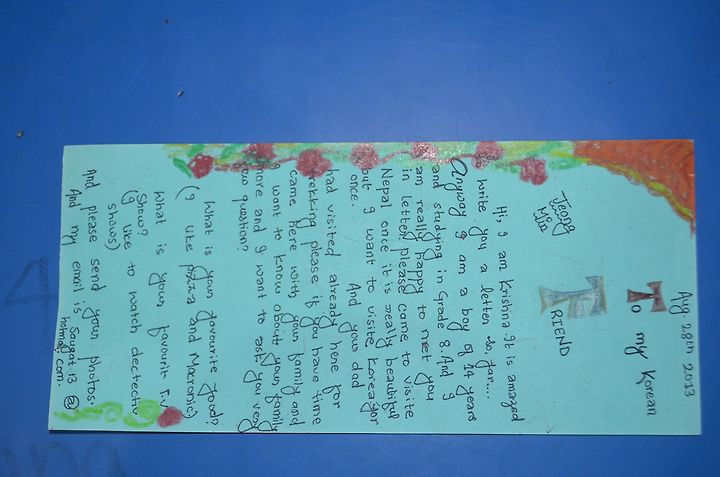 Aug 28th 2013
To my Korean
FRIEND
Jeong
Min
Hi, I am Krishna It is amazed
write you a letter so, far....
Anyway I am a boy of 14 years
and studying in Grade 8. And I
am really happy to meet you
in letter please come to visite
Nepal once it is really beautiful
but I want to visite Korea for
once. And your dad
had visited already here for
trekking please if you have time
came here with your family and
I want to know about your family
more and I want to ask you very
few question?
What is your favourite food?
(I like pizza and Macronic)
What is your favourite T.V
show?
(I like to watch dectectiv
shows)
And please send your photos.
And my email is Sougat 13 @
hotmail.com.